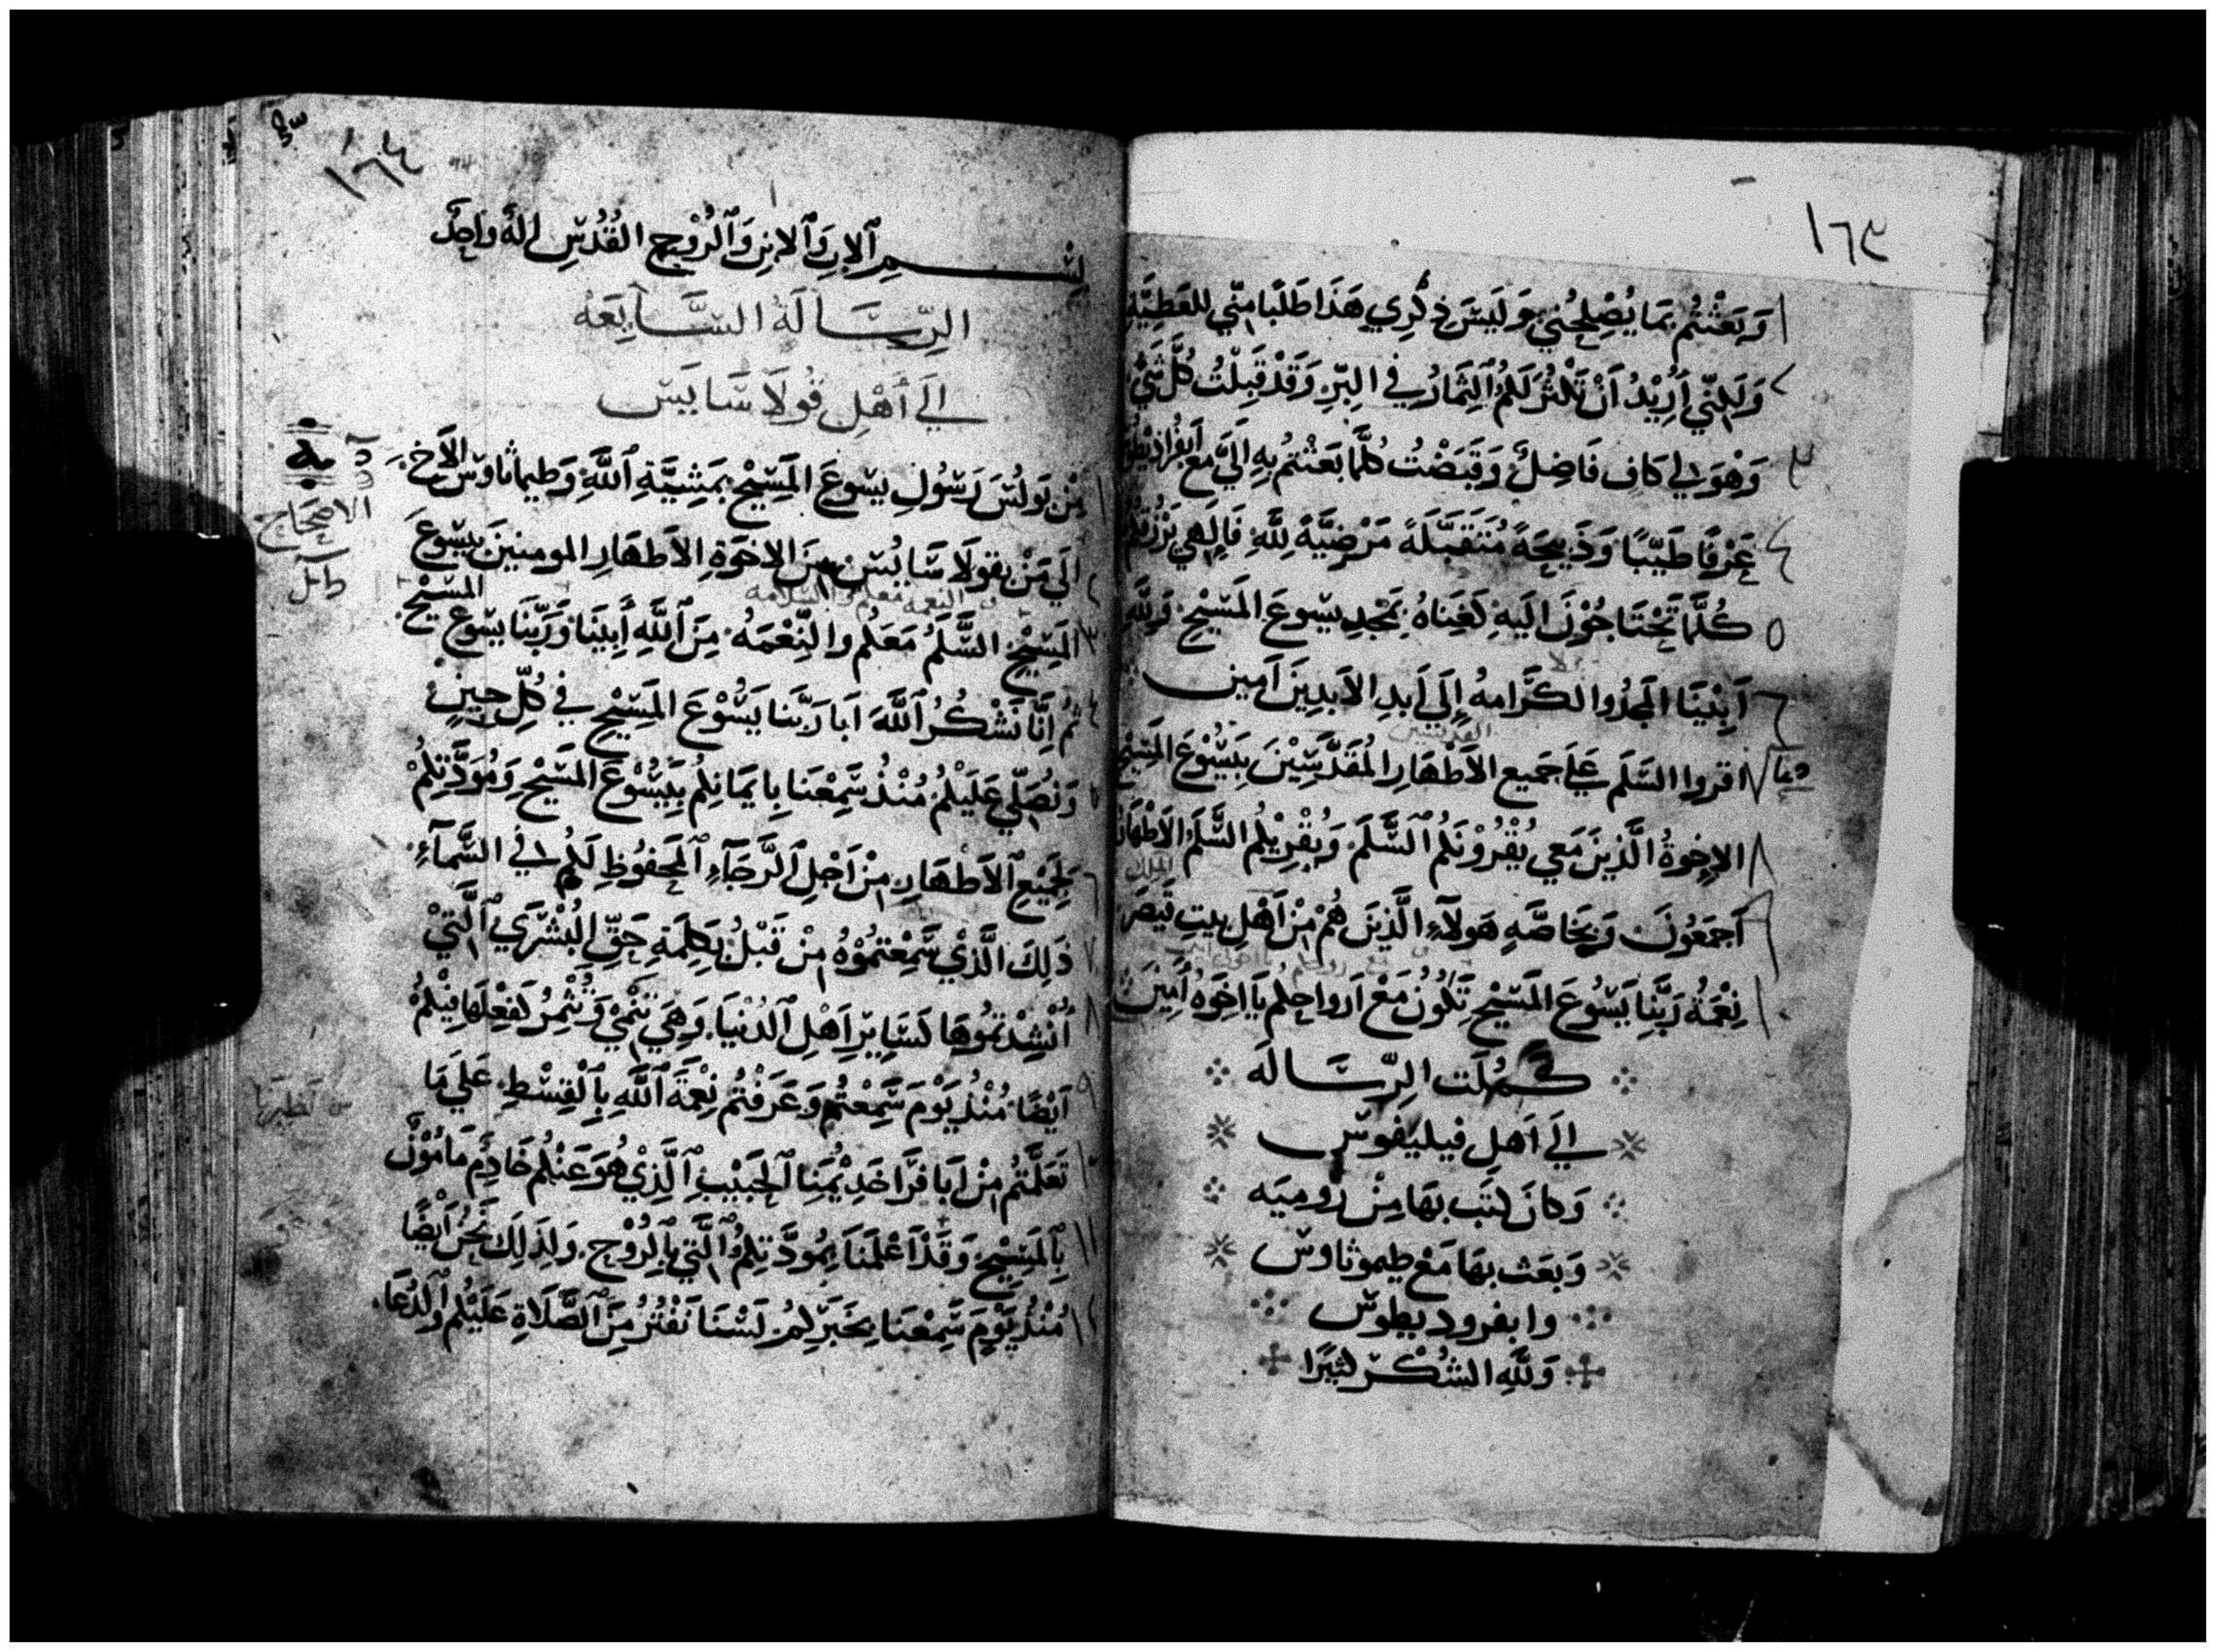 ١٦٣
١ وَبَعَثْتُم بِمَا يُصْلِحُنِي وَلَيسَ ذِكْرِي هَذَا طَلَبًا مِنّي لِلعَطِيَّةِ
٢ وَلَكِنّي أُرِيْدُ أَنْ تَكْثُرَ لَكُمُ ٱلثِمَارُ فِي البِرِّ وَقَدْ قَبِلْتُ كُلَّ شَيْ
٣ وَهْوَ لِي كَافٍ فَاضِلٌ وَقَبَضْتُ كُلَّمَا بَعَثْتُمُ بِهِ إِلَيَّ مَعَ
٤ عَرْفًا طَيّبًا وَذَبِيحَةً مُتَقَبَّلَةً مَرْضِيَّةً لِلَّهِ فَإِلَهِي يَرْزُقُكُم
٥ كُلَّمَا تَحْتَاجُوْنَ الَيهِ كَغِنَاهُ بِمَجْدِ يسوعَ المَسِيْحِ وَلِلَّهِ
٦ أَبِيْنَا المَجْدُ والكَرَامهُ إِلَى أَبَدِ الابَدِينَ آمِين
القديسين
٧ اقروا السَّلَم عَلَى جَمِيعِ الأَطْهَارِ المُقَدَّسِيْنَ بِيَسُوْعَ المَسِيْحِ
٨ الاخوةُ الَّذِينَ مَعِي يُقْرُوْنَكُمُ ٱلسَّلَمَ وَيُقْرِيْكُم السَّلَمَ الأَطْهَارُ
الملك
٩ أَجمَعُونَ وَبِخَاصَّهٍ هَولَآءِ الَّذِينَ هُمْ مِنْ أَهْلِ بيتِ قَيصَرَ
١٠ نِعْمَةُ رَبِّنَا يَسُوعَ المَسِيْحِ تَكُوْنُ مَعْ اَرواحِكُم يَا اخوَه أَمِينَ
كَمُلَت الرِّسَالَه
الَى اَهلِ فيليفوس
وَكانَ كتَبَ بهَا مِنْ روميَه
وَبَعَث بهَا مَعْ طيموثاوس
وابفروديطوس
وَلِلَّهِ الشُكْرُ كثيرًا
١٦٤
بِسْمِ ٱلابِ وَٱلابنِ وَٱلرُوْحِ القُدُسِ إلَهٌ وَاحِدٌ
الرِّسَالَةُ السَّابِعَه
الَى أَهْلِ قُولاَسَايَس
الاصحاح
١ مِنْ بَولُسَ رَسُولِ يسُوعَ المَسِيْحِ بِمَشِيَّةِ ٱللَّهِ وَطيماثاوس الأخ
٢ الَى مَنْ بقولَاسَايُس مِنَ الاخوَةِ الأَطهَارِ المومنينَ بيسُوعَ
النعمه معكم والسلامه
٣ المَسِيْحِ السَّلَمُ مَعَكُم والنِّعْمَهُ مِنَ ٱللَّهِ أَبِينَا وَرَبِّنَا يسُوعَ المَسِيْحِ
٤ ثُمَ إِنَّا نَشْكُرُ ٱللَّهَ ابَا رَبِّنَا يَسُوْعَ المَسِيْحِ فِي كُلِّ حِينٍ
٥ وَنُصَلِّي عَلَيْكُمُ مُنْذُ سَمِعْنَا بِإِيمَانِكُم بِيَسُوْعَ المَسِيْحِ وَمُوَدَّتِكُمْ
٦ لِجَمِيْعِ ٱلأَطْهَارِ مِنْ اَجْلِ ٱلرَّجَآءِ ٱلمَحفُوظِ لَكُم فِي السَّمآءِ
٧ ذَلِكَ الَّذِيْ سَمِعْتمُوْهُ مِنْ قَبْلُ بِكَلِمَةِ حَقِّ البُشْرَي ٱلَّتِيْ
٨ أُنْشِدْتمُوهَا كسَايِرِ اَهْلِ ٱلدُنْيَا وَهِيَ تَنْمِيْ وَتُثْمِرُ كَفِعْلِهَا فِيْكُمْ
٩ أَيْضًا مُنْذُ يَوْمَ سَمِعْتُم وَعَرَفْتُمْ نِعْمَةَ ٱللَّهِ بِٱلْقِسْطِ عَلَي مَا
١٠ تَعَلَّمْتُم مِنْ اَبَافرَا خَدِيْمِنَا ٱلحَبِيْبِ ٱلَّذِيْ هُوَ عَنْكُم خَادِمٌ مَامُوْنٌ
١١ بِٱلمَسِيْحِ وَقَدْ اَعْلَمَنَا بِمُودَّتِكُمُ ٱلَّتِي بِٱلرُوْحِ وَلِذَلِكَ نَحْنُ أَيْضًا
١٢ مُنْذُ يَوْمٍ سَمِعْنَا بِخَبَرِكُمْ لَسْنَا نَفْتُرُ مِنَ ٱلصَّلَاةِ عَلَيْكُم وَٱلدُعَا